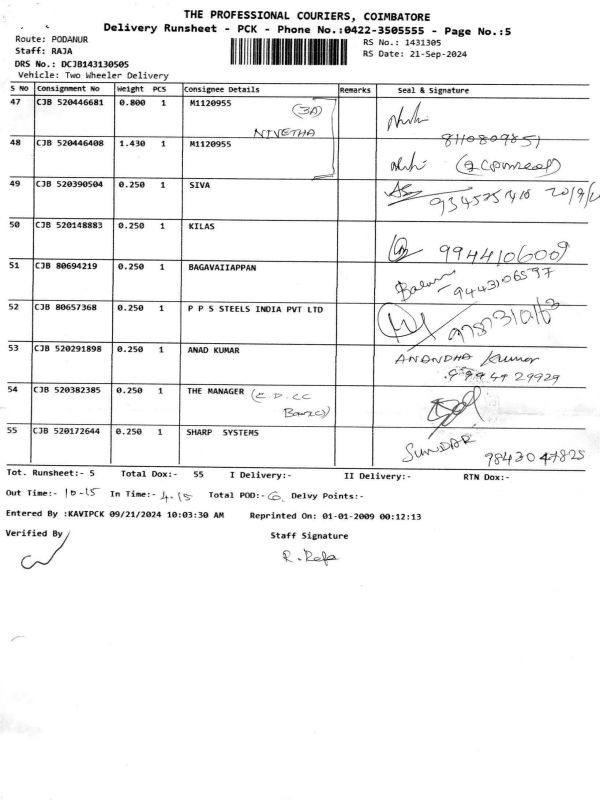 THE PROFESSIONAL COURIERS, COIMBATORE
Delivery Runsheet - PCK - Phone No.:0422-3505555 - Page No.:5
Route: PODANUR
RS No.: 1431305
Staff: RAJA
RS Date: 21-Sep-2024
DRS No.: DCJB143130505
Vehicle: Two Wheeler Delivery
S No Consignment No Weight PCS Consignee Details Remarks Seal & Signature
47 CJB 520446681 0.800 1 M1120955
(3A)
NIVETHA
8110809851
48 CJB 520446408 1.430 1 M1120955
49 CJB 520390504 0.250 1 SIVA
50 CJB 520148883 0.250 1 KILAS
9944106009
51 CJB 80694219 0.250 1 BAGAVAIIAPPAN
9443106597
52 CJB 80657368 0.250 1 P P S STEELS INDIA PVT LTD
53 CJB 520291898 0.250 1 ANAD KUMAR
ANANDHA Kumar
54 CJB 520382385 0.250 1 THE MANAGER
55 CJB 520172644 0.250 1 SHARP SYSTEMS
SUNDAR
9842047825
Tot. Runsheet:- 5 Total Dox:- 55 I Delivery:- II Delivery:- RTN Dox:-
Out Time:- 10-15 In Time:- 4.15 Total POD:- 6. Delvy Points:-
Entered By :KAVIPCK 09/21/2024 10:03:30 AM Reprinted On: 01-01-2009 00:12:13
Verified By
Staff Signature
R. Raja